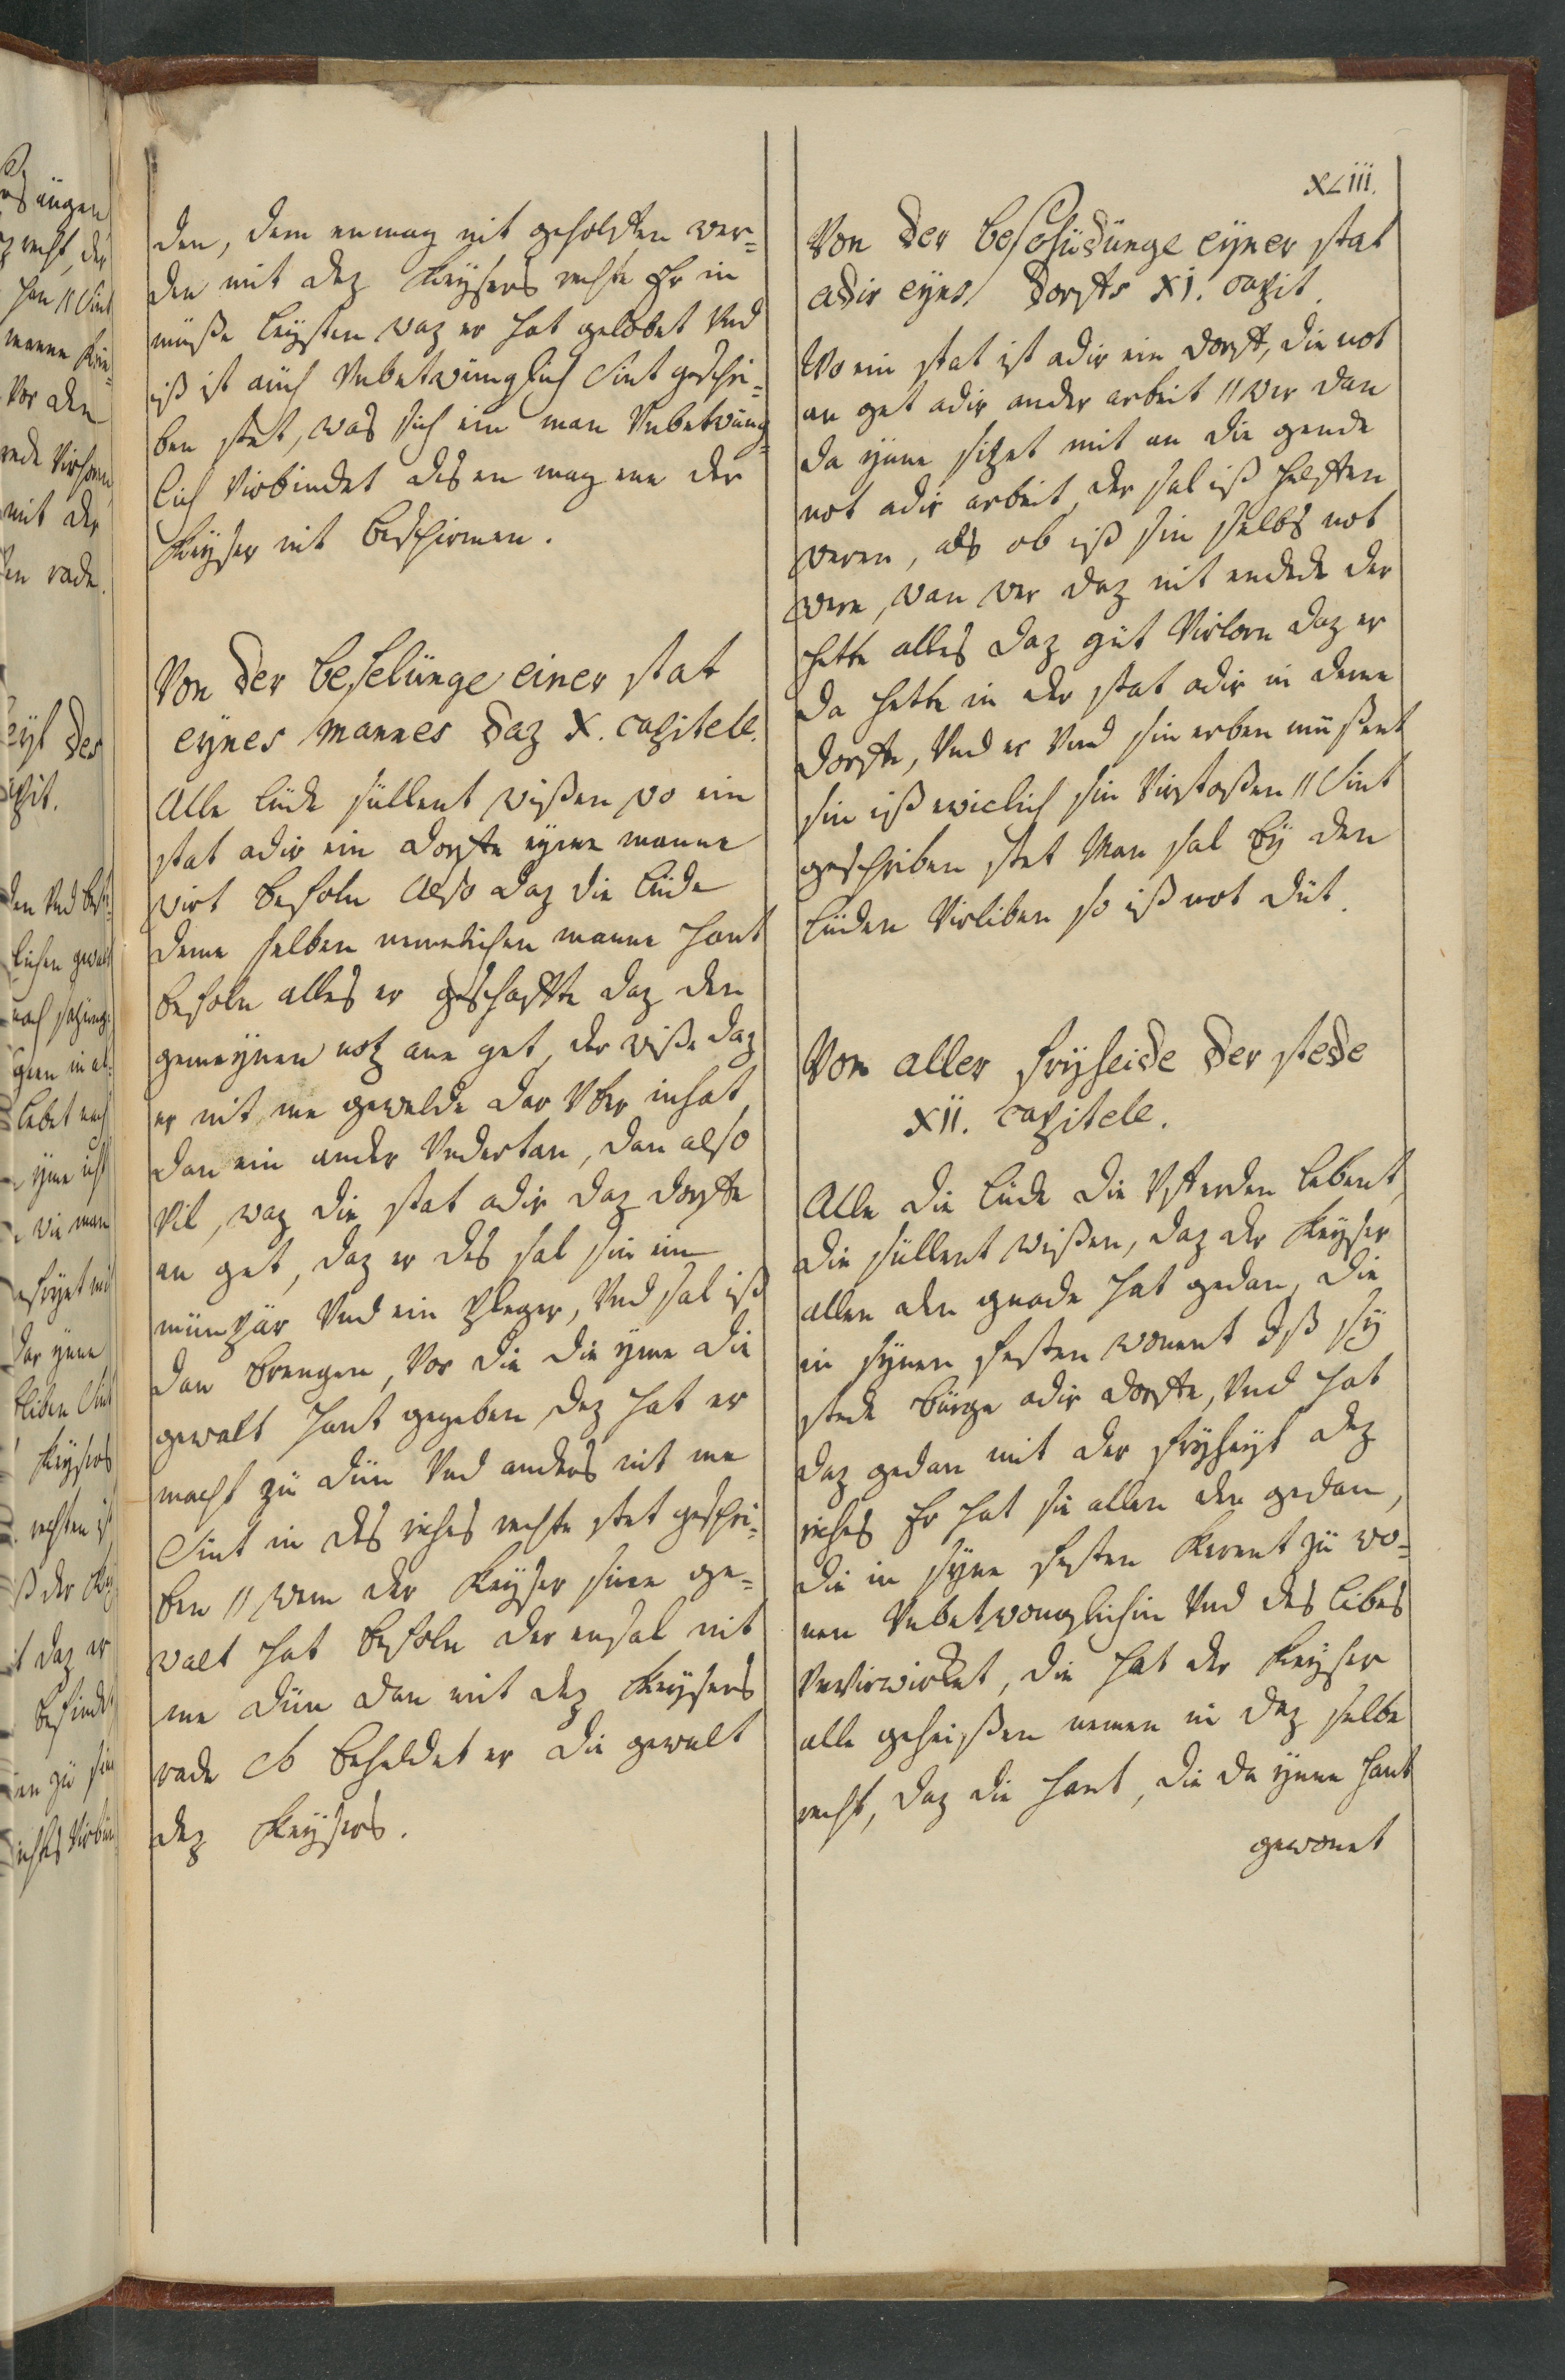 XLIII.
den, dem enmag nit geholffen wer-
den mit dez Keysers rechte Er in
müße leysten waz er hat gelobet Vnd
iß ist aüch Vnbetwünglich Sint geschri-
ben stet, was sich ein man Vnbetwüng-
lich Virbindet des en mag ene der
Keyser nit beschirmen.
Von der befelünge einer stat
eynes mannes daz X. capitele.
Alle lüde süllent wißen wo ein
stat adir ein dorffe eyme manne
wirt befoln Also daz die lüde
deme selben nemelichen manne hant
befoln alles er geschaffte daz den
gemeynen notz ane get, der wiße daz
er nit me gewelde dar Vber inhat
dan ein ander Vndertan, dan also
vil, waz die stat adir daz dorffe
an get, daz er des sal sin ein
münpar Vnd ein pleger, Vnd sal iß
dan brengen, Vor die die yme die
gewalt hant gegeben, dez hat er
macht zü dün Vnd anders nit me
Sint in des riches rechte stet geschri-
ben // wem der Keyser sine ge-
walt hat befoln der ensal nit
me dün dan mit dez Keysers
rade So beheldet er die gewalt
dez Keysers.
Von der beschüdünge eyner stat
adir eyns dorffs XI. capit.
Wo ein stat ist adir ein dorff, die not
an get adir ander arbeit // wer dan
da ynne sitzet mit an die gende
not adir arbeit, der sal iß helffen
weren, als ob iß sin selbs not
were, wan wer daz nit endede der
hette alles daz güt Virlorn daz er
da hette in der stat adir in deme
dorffe, Vnd er Vnd sin erben müßent
sin iß ewiclich sin Virstoßen // Sint
geschriben stet Man sal by den
lüden Virliben so iß not düt.
Von aller fryheide der stede
XII. capitele.
Alle die lüde die Vff erden lebent,
die süllent wißen, daz der Keyser
allen den gnade hat gedan, die
in synen festen wonent Iß sy
stede bürge adir dorffe, Vnd hat
daz gedan mit der fryheyt dez
riches Er hat sie allen den gedan,
die in syne festen kerent zü wo-
nen Vnbetwonglichin Vnd des libes
Vnvirwirket, die hat der Keyser
alle geheißen nemen in daz selbe
recht, daz die hant, die da ynne hant
gewonet